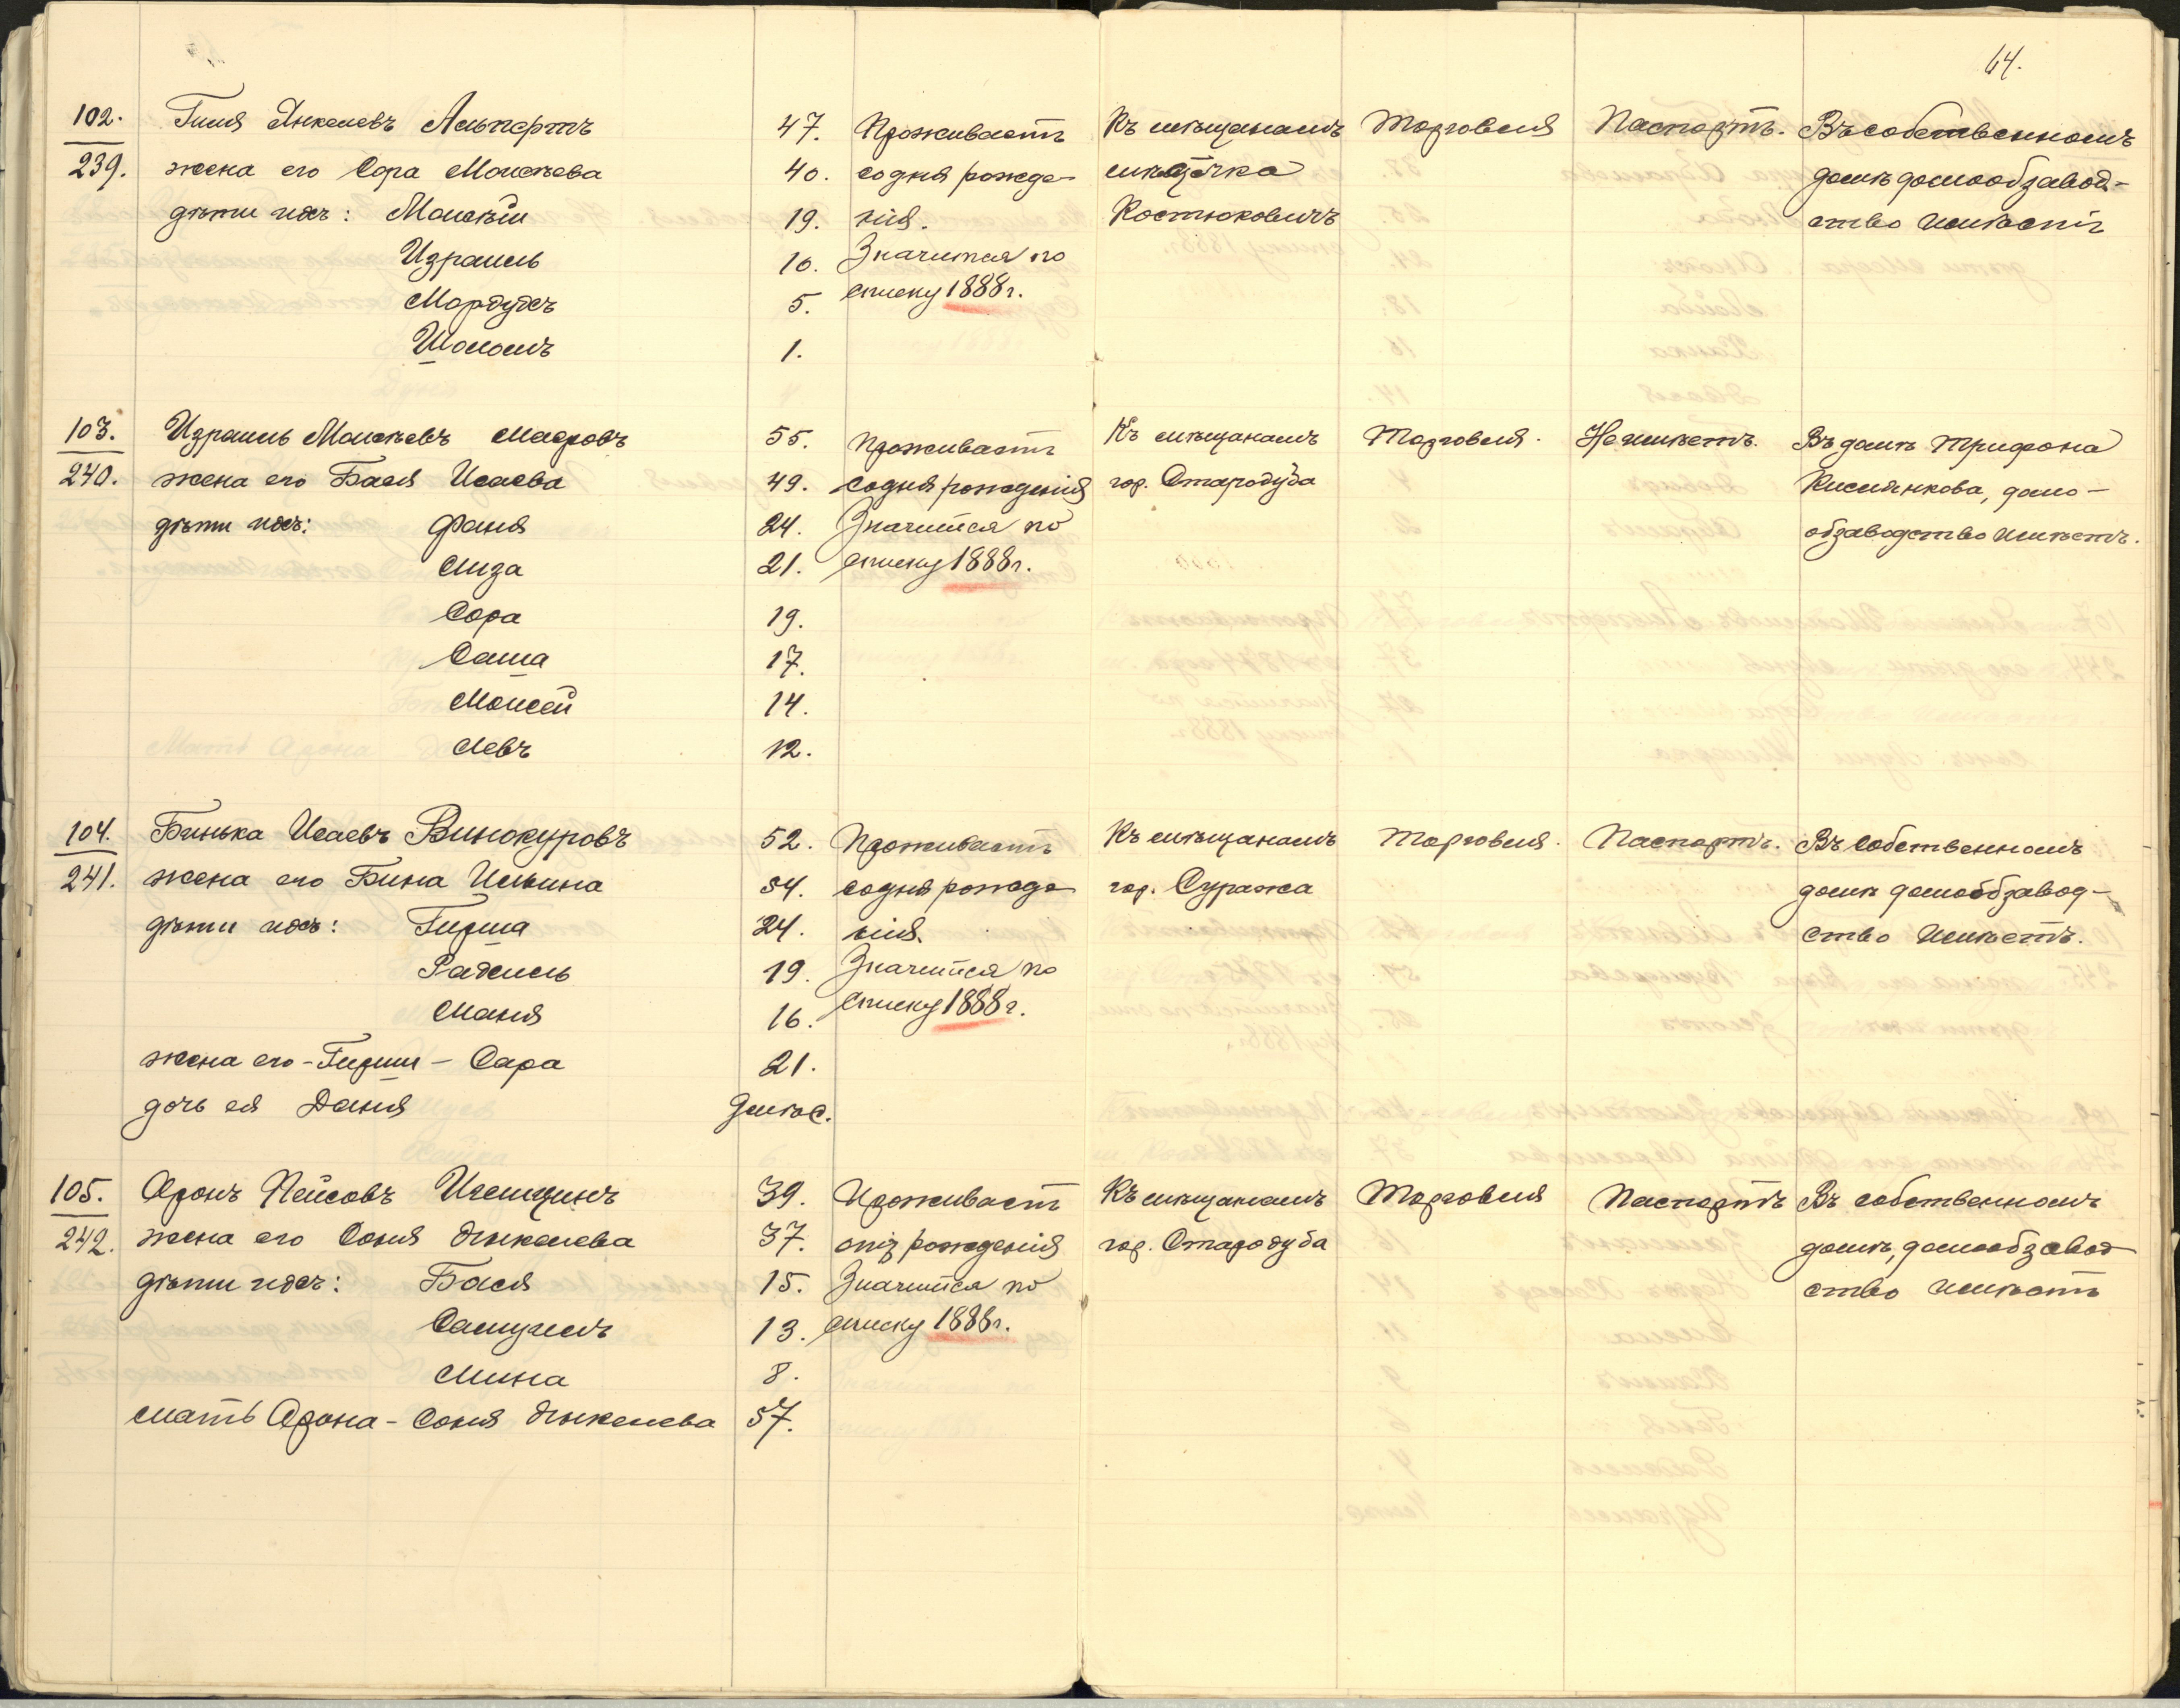 64.
102.
239.
Гиля Янкелевъ Альпертъ
жена его Сора Моисѣева
дѣти ихъ: Моисѣй
Израиль
Мордухъ
Шоломъ
47.
40.
19.
10.
5.
1.
Проживаетъ
со дня рожде-
нія.
Значится по
списку 1888 г.
Къ мѣщанамъ
мѣстечка
Костюковичъ
Торговля
Паспортъ.
Въ собственномъ
домѣ домообзавод-
ство имѣетъ
103.
240.
Израиль Моисѣевъ
жена его Бася Исаева
дѣти ихъ: Фаня
Лиза
Сора
Саша
Моисей
Левъ
55.
49.
24.
21.
19.
17.
14.
12.
Проживаетъ
со дня рожденія
Значится по
списку 1888 г.
Къ мѣщанамъ
гор. Стародуба
Торговля.
Не имѣетъ.
Въ домѣ Трифона
домо-
обзаводство имѣетъ.
104.
241.
Бинька Исаевъ Винокуровъ
жена его Бина Ильина
дѣти ихъ: Гирша
Рахиль
Маня
жена его - Гирши - Сара
дочь ея Даня
52.
54.
24.
19.
16.
21.
Проживаетъ
со дня рожде
нія.
Значится по
списку 1888 г.
Къ мѣщанамъ
гор. Суража
Торговля.
Паспортъ.
Въ собственномъ
домѣ домообзавод-
ство имѣетъ.
105.
242.
Аронъ Пейсовъ
жена его Соня Янкелева
дѣти ихъ: Бася
Самуилъ
Мина
мать Арона - Соня Янкелева
39.
37.
15.
13.
8.
57.
Проживает
отъ рожденія
Значится по
списку 1888 г.
Къ мѣщанамъ
гор. Стародуба
Торговля
Паспортъ
Въ собственномъ
домѣ, домообзавод
ство имѣетъ